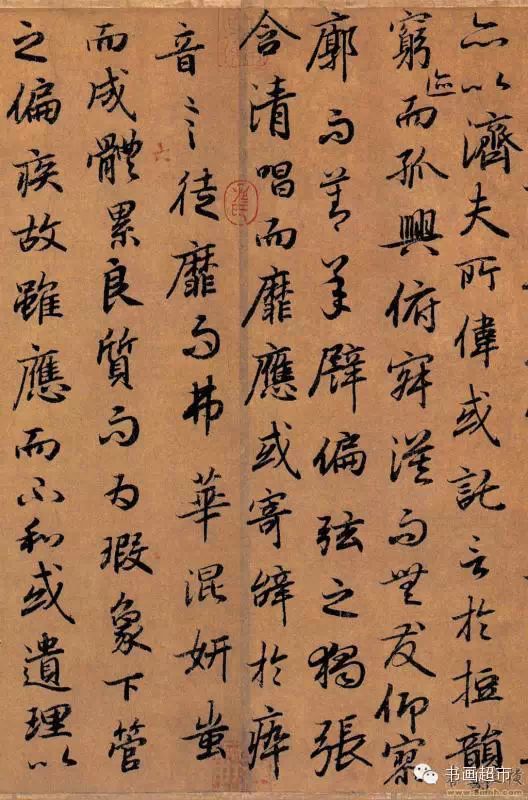 亦以濟夫所偉或託言於短韻
窮迹而孤興俯寂漠而無友仰寥
廓而莫承譬偏弦之獨張
含清唱而靡應或寄辭於瘁
音言徒靡而弗華混妍蚩
而成體累良質而為瑕象下管
之偏疾故雖應而不和或遺理以
书画超市